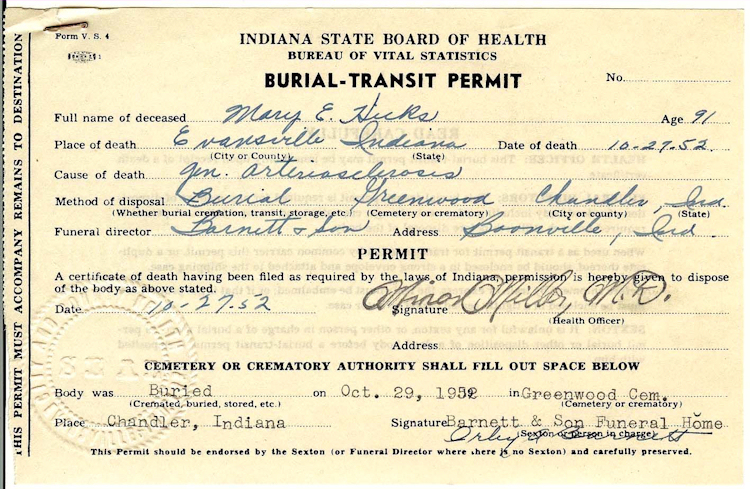 THIS PERMIT MUST ACCOMPANY REMAINS TO DESTINATION
Form V. S. 4
INDIANA STATE BOARD OF HEALTH
BUREAU OF VITAL STATISTICS
BURIAL-TRANSIT PERMIT
No.
Full name of deceased Mary E. Hicks Age 91
Place of death Evansville Indiana Date of death 10-27-52
(City or County) (State)
Cause of death Gen. Arteriosclerosis
Method of disposal Burial Greenwood Chandler, Ind
(Whether burial cremation, transit, storage, etc.) (Cemetery or crematory) (City or county) (State)
Funeral director Barnett & Son Address Boonville, Ind
PERMIT
A certificate of death having been filed as required by the laws of Indiana, permission is hereby given to dispose
of the body as above stated.
Date 10-27-52 Signature Minor Miller, M.D.
(Health Officer)
Address
SEAL
CEMETERY OR CREMATORY AUTHORITY SHALL FILL OUT SPACE BELOW
Body was Buried on Oct. 29, 1952 in Greenwood Cem.
(Cremated, buried, stored, etc.) (Cemetery or crematory)
Place Chandler, Indiana Signature Barnett & Son Funeral Home
(Sexton or person in charge)
This Permit should be endorsed by the Sexton (or Funeral Director where there is no Sexton) and carefully preserved.